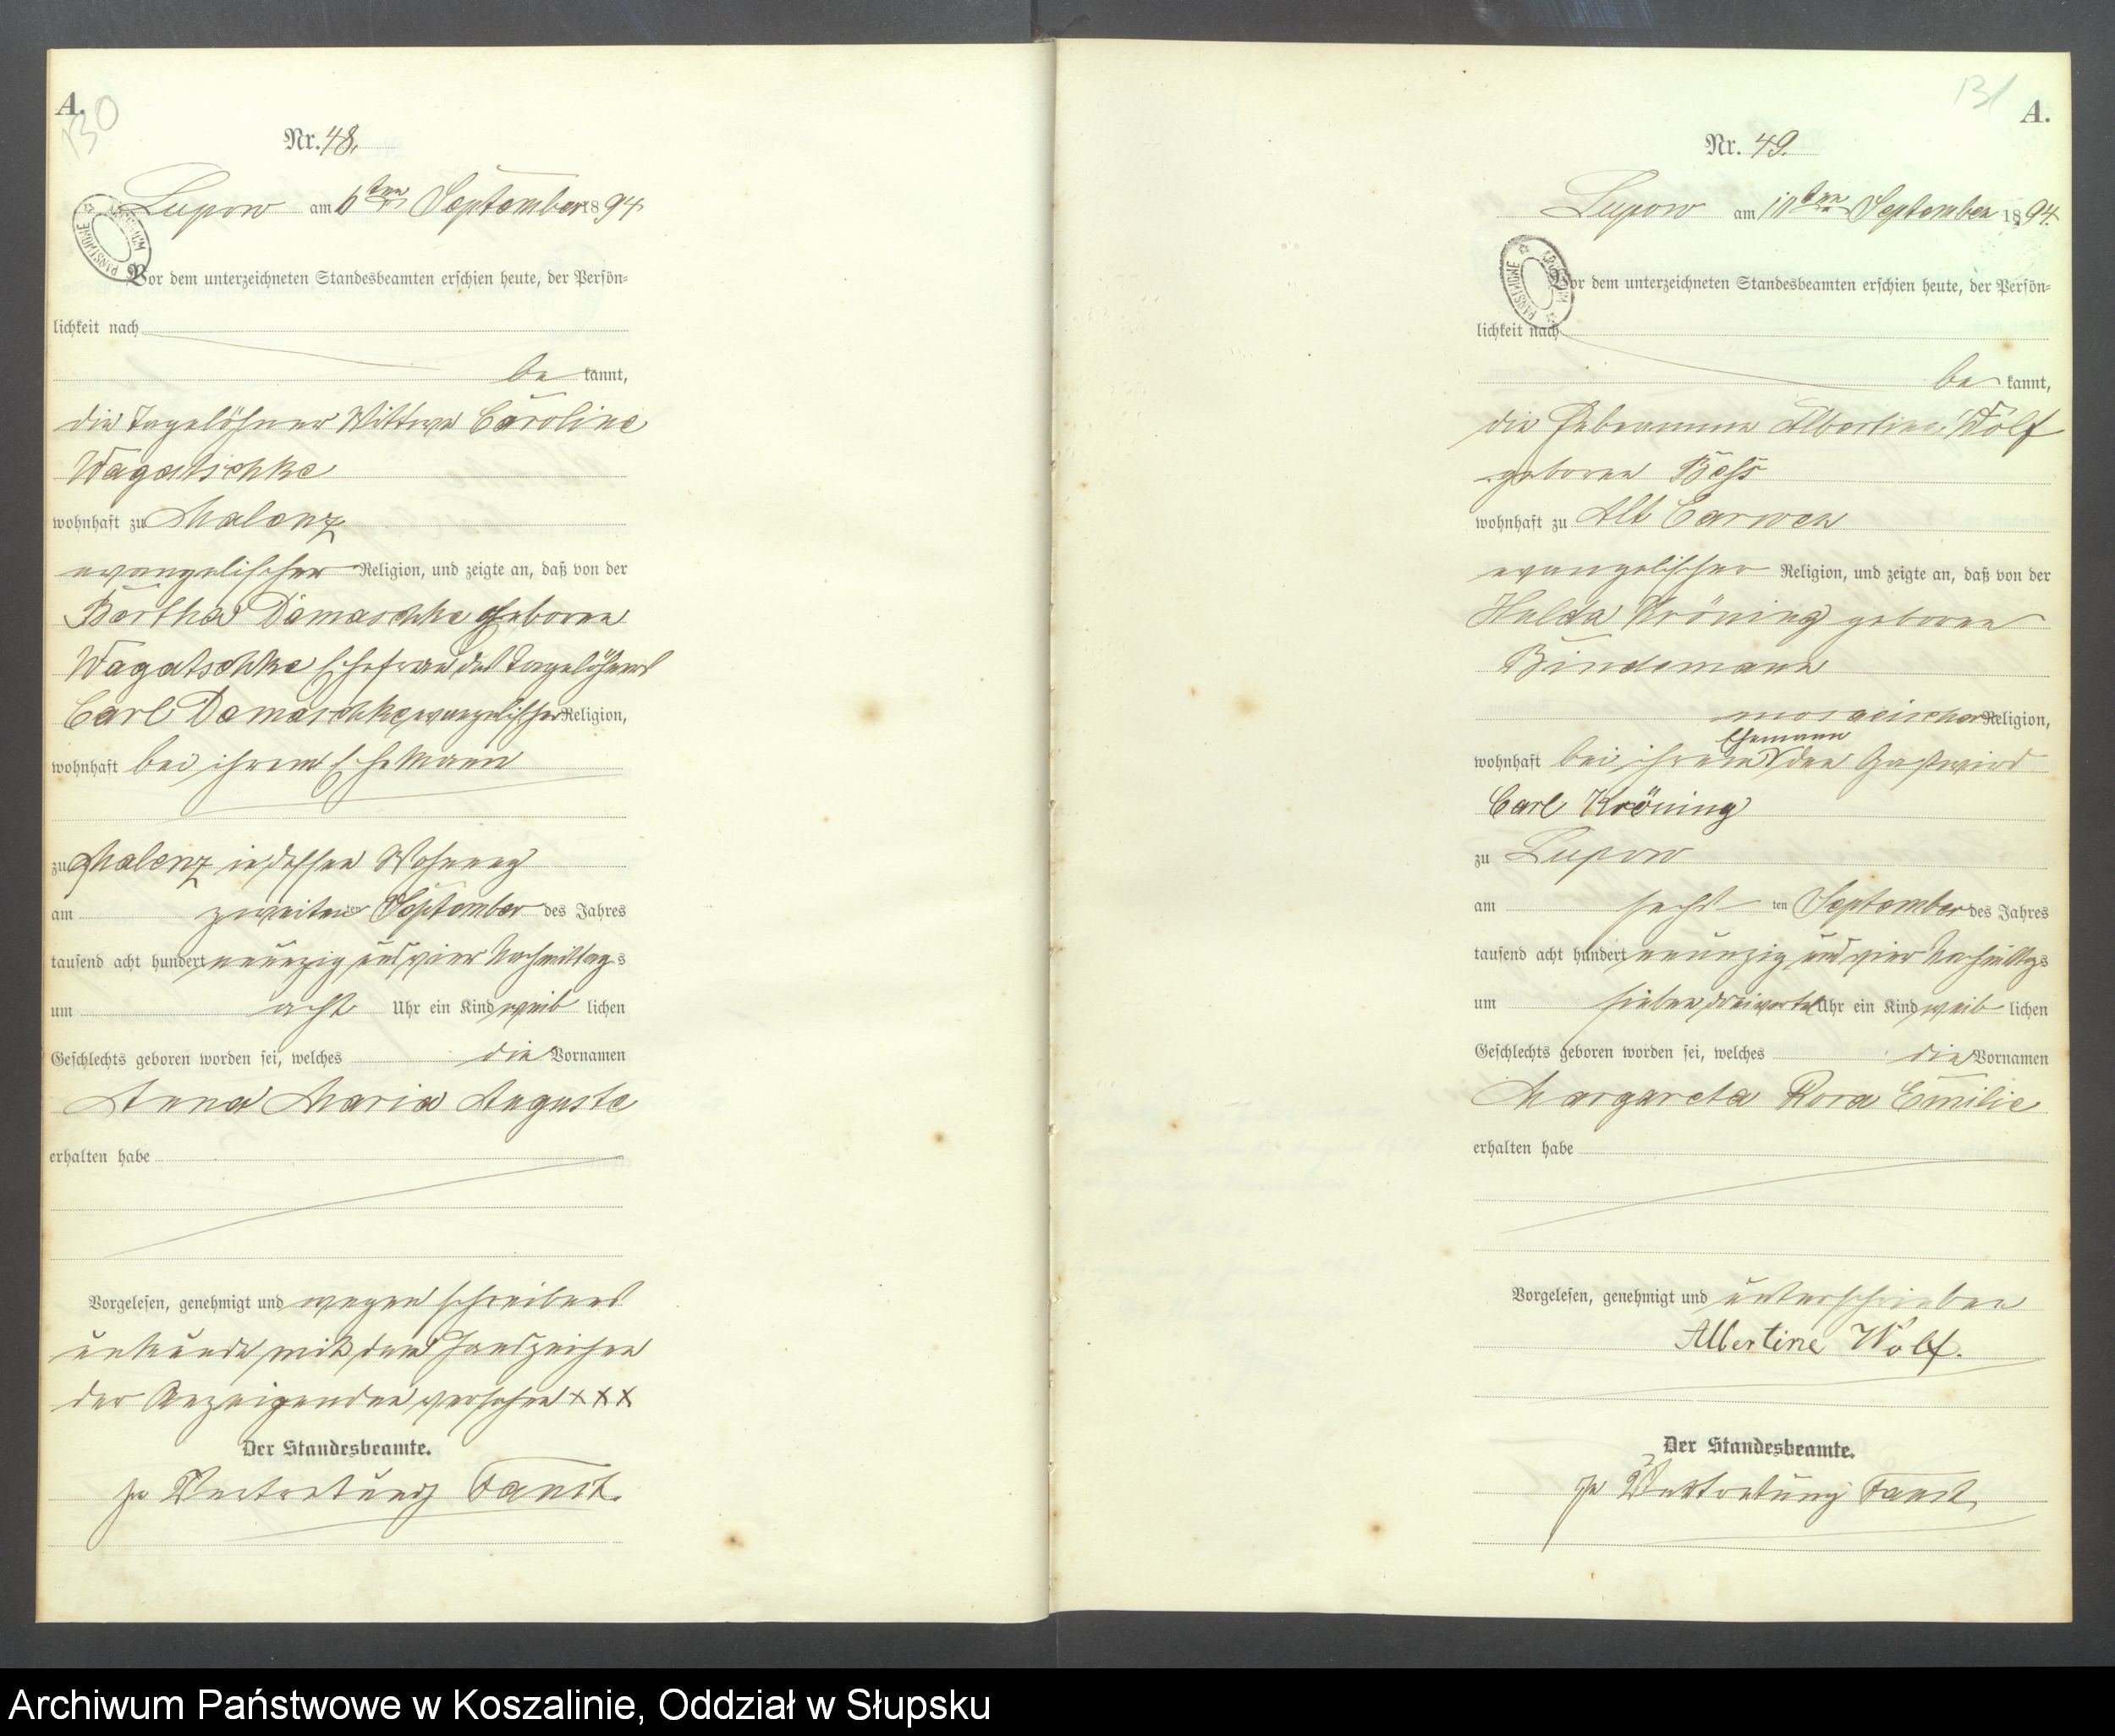 A.
130
Nr. 48.
Lupow am 6ten September 1894
ARCHIWUM PAŃSTWOWE
Vor dem unterzeichneten Standesbeamten erschien heute, der Persön-
lichkeit nach
be kannt,
die Tagelöhner Wittwe Caroline
Wagatschke
wohnhaft zu Malenz
evangelischer Religion, und zeigte an, daß von der
Bertha Damaschke geborene
Wagatschke Ehefrau des Tagelöhners
Carl Damaschke, evangelischer Religion,
wohnhaft bei ihrem Ehemann
zu Malenz in dessen Wohnung
am zweiten ten September des Jahres
tausend acht hundert neunzig und vier Nachmittags
um acht Uhr ein Kind weib lichen
Geschlechts geboren worden sei, welches die Vornamen
Anna Maria Auguste
erhalten habe
Vorgelesen, genehmigt und wegen schreibens
unkunde mit dem Handzeichen
der Anzeigenden versehen XXX
Der Standesbeamte.
In Vertretung Faust.
131
A.
Nr. 49.
Lupow am 10ten September 1894.
ARCHIWUM PAŃSTWOWE
Vor dem unterzeichneten Standesbeamten erschien heute, der Persön-
lichkeit nach
be kannt,
die Hebeamme Albertine Wolf
geborene Bess
wohnhaft zu Alt Carwen
evangelischer Religion, und zeigte an, daß von der
Hulda Kröning geborene
Bindemann
mosaischer Religion,
Ehemann
wohnhaft bei ihrem den Gastwird
Carl Kröning
zu Lupow
am sechs ten September des Jahres
tausend acht hundert neunzig und vier Nachmittags
um sieben dreivertel Uhr ein Kind weib lichen
Geschlechts geboren worden sei, welches die Vornamen
Margareta Rora Emilie
erhalten habe
Vorgelesen, genehmigt und unterschrieben
Albertine Wolf.
Der Standesbeamte.
In Vertretung Faust.
Archiwum Państwowe w Koszalinie, Oddział w Słupsku